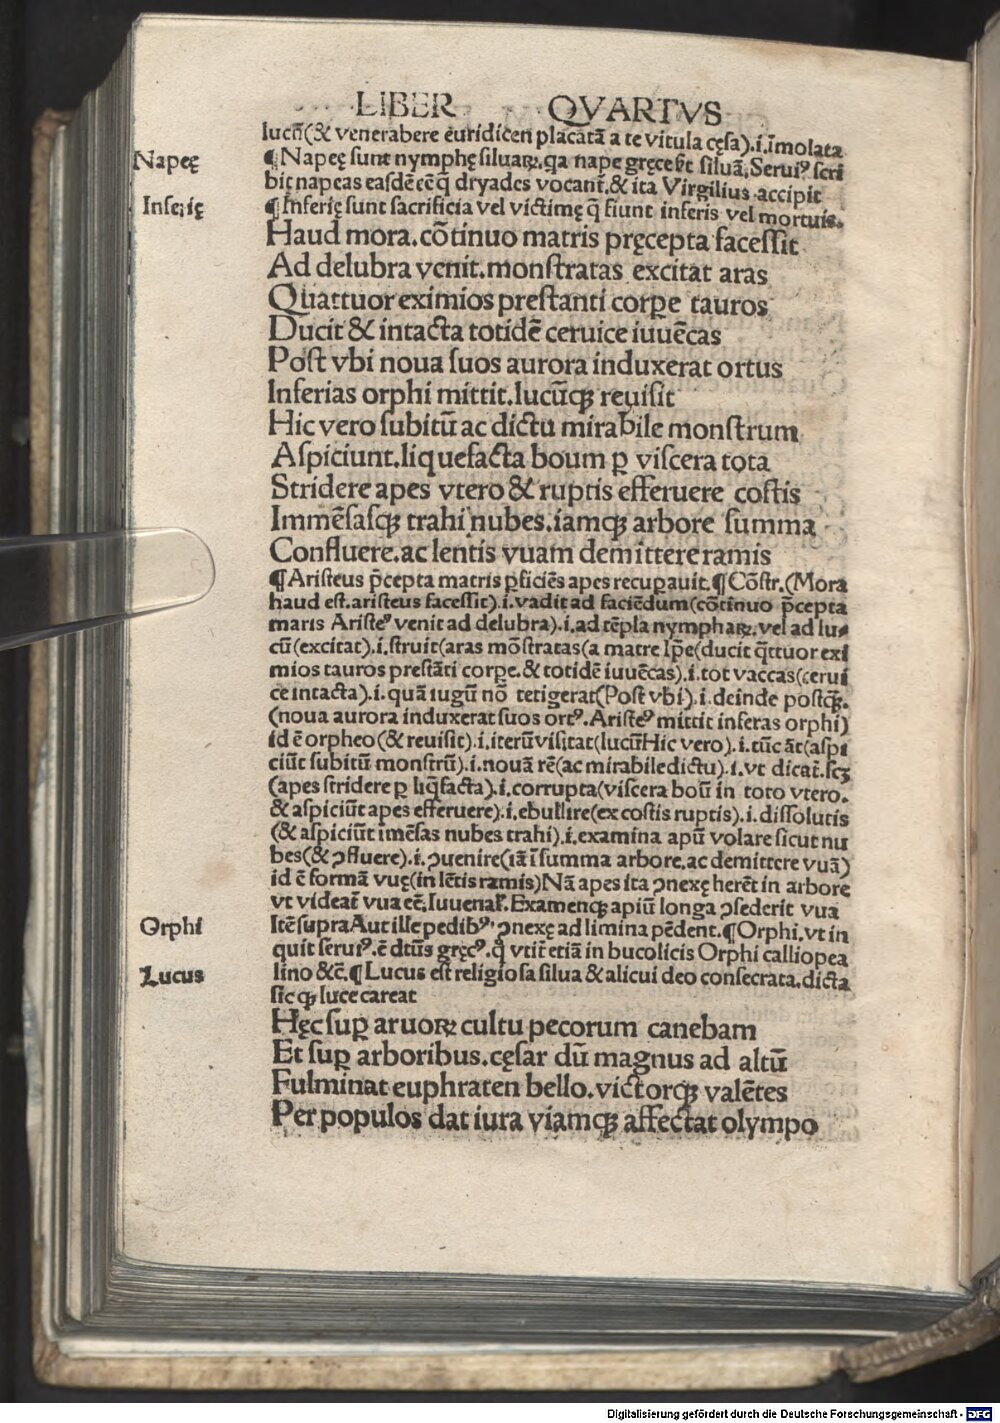 LIBER QVARTVS
lucū(& venerabere euridicen placatā a te vitula cęsa).i.īmolata
Napeę
¶Napeę sunt nymphę siluaꝝ.qa nape gręce est siluā.Seruiꝰ scri
bit napeas easdē eē q̄ dryades vocant̄.& ita Virgilius accipit
Inferię
¶Inferię sunt sacrificia vel victimę q̄ fiunt inferis vel mortuis.
Haud mora.cōtinuo matris pręcepta facessit
Ad delubra venit.monstratas excitat aras
Quattuor eximios prestanti corꝑe tauros
Ducit & intacta totidē ceruice iuuēcas
Post vbi noua suos aurora induxerat ortus
Inferias orphi mittit.lucūqꝫ reuisit
Hic vero subitū ac dictu mirabile monstrum
Aspiciunt.liquefacta boum ꝑ viscera tota
Stridere apes vtero & ruptis efferuere costis
Immēsasqꝫ trahi nubes.iamqꝫ arbore summa
Confluere.ac lentis vuam demittere ramis
¶Aristeus p̄cepta matris ꝑficiēs apes recuꝑauit.¶Cōstr.(Mora
haud est.aristeus facessit).i.vadit ad faciēdum(cōtinuo p̄cepta
maris Aristeꝰ venit ad delubra).i.ad tēpla nymphaꝝ.vel ad lu⸗
cū(excitat).i.struit(aras mōstratas(a matre Ip̄e(ducit q̄ttuor exi
mios tauros prestāti corꝑe.& totidē iuuēcas).i.tot vaccas(cerui
ce intacta).i.quā iugū nō tetigerat(Post vbi).i.deinde postqꝫ.
(noua aurora induxerat suos ortꝰ.Aristeꝰ mittit inferas orphi)
id ē orpheo(& reuisit).i.iterū visitat(lucū Hic vero).i.tūc āt(aspi
ciūt subitū monstrū).i.nouā rē(ac mirabile dictu).i.vt dicat̄.scꝫ
(apes stridere ꝑ liq̄facta).i.corrupta(viscera boū in toto vtero.
& aspiciūt apes efferuere).i.ebullire(ex costis ruptis).i.dissolutis
(& aspiciūt imēsas nubes trahi).i.examina apū volare sicut nu
bes(& ꝯfluere).i.ꝯuenire(iā ī summa arbore.ac demittere vuā)
id ē formā vuę(in lētis ramis)Nā apes ita ꝯnexę herēt in arbore
vt videat̄ vua eē.Iuuenal̄.Examenqꝫ apiū longa ꝯsederit vua
Orphi
Itē supra Aut ille pedibꝰ ꝯnexę ad limina pēdent.¶Orphi.vt in
quit seruiꝰ.ē dtūs gręcꝰ.q̄ vtit̄ etiā in bucolicis Orphi calliopea
Lucus
lino &c̄.¶Lucus est religiosa silua & alicui deo consecrata.dicta
sic qꝫ luce careat
Hęc suꝑ aruoꝝ cultu pecorum canebam
Et suꝑ arboribus.cęsar dū magnus ad altū
Fulminat euphraten bello.victorqꝫ valētes
Per populos dat iura viamqꝫ affectat olympo
Digitalisierung gefördert durch die Deutsche Forschungsgemeinschaft - DFG